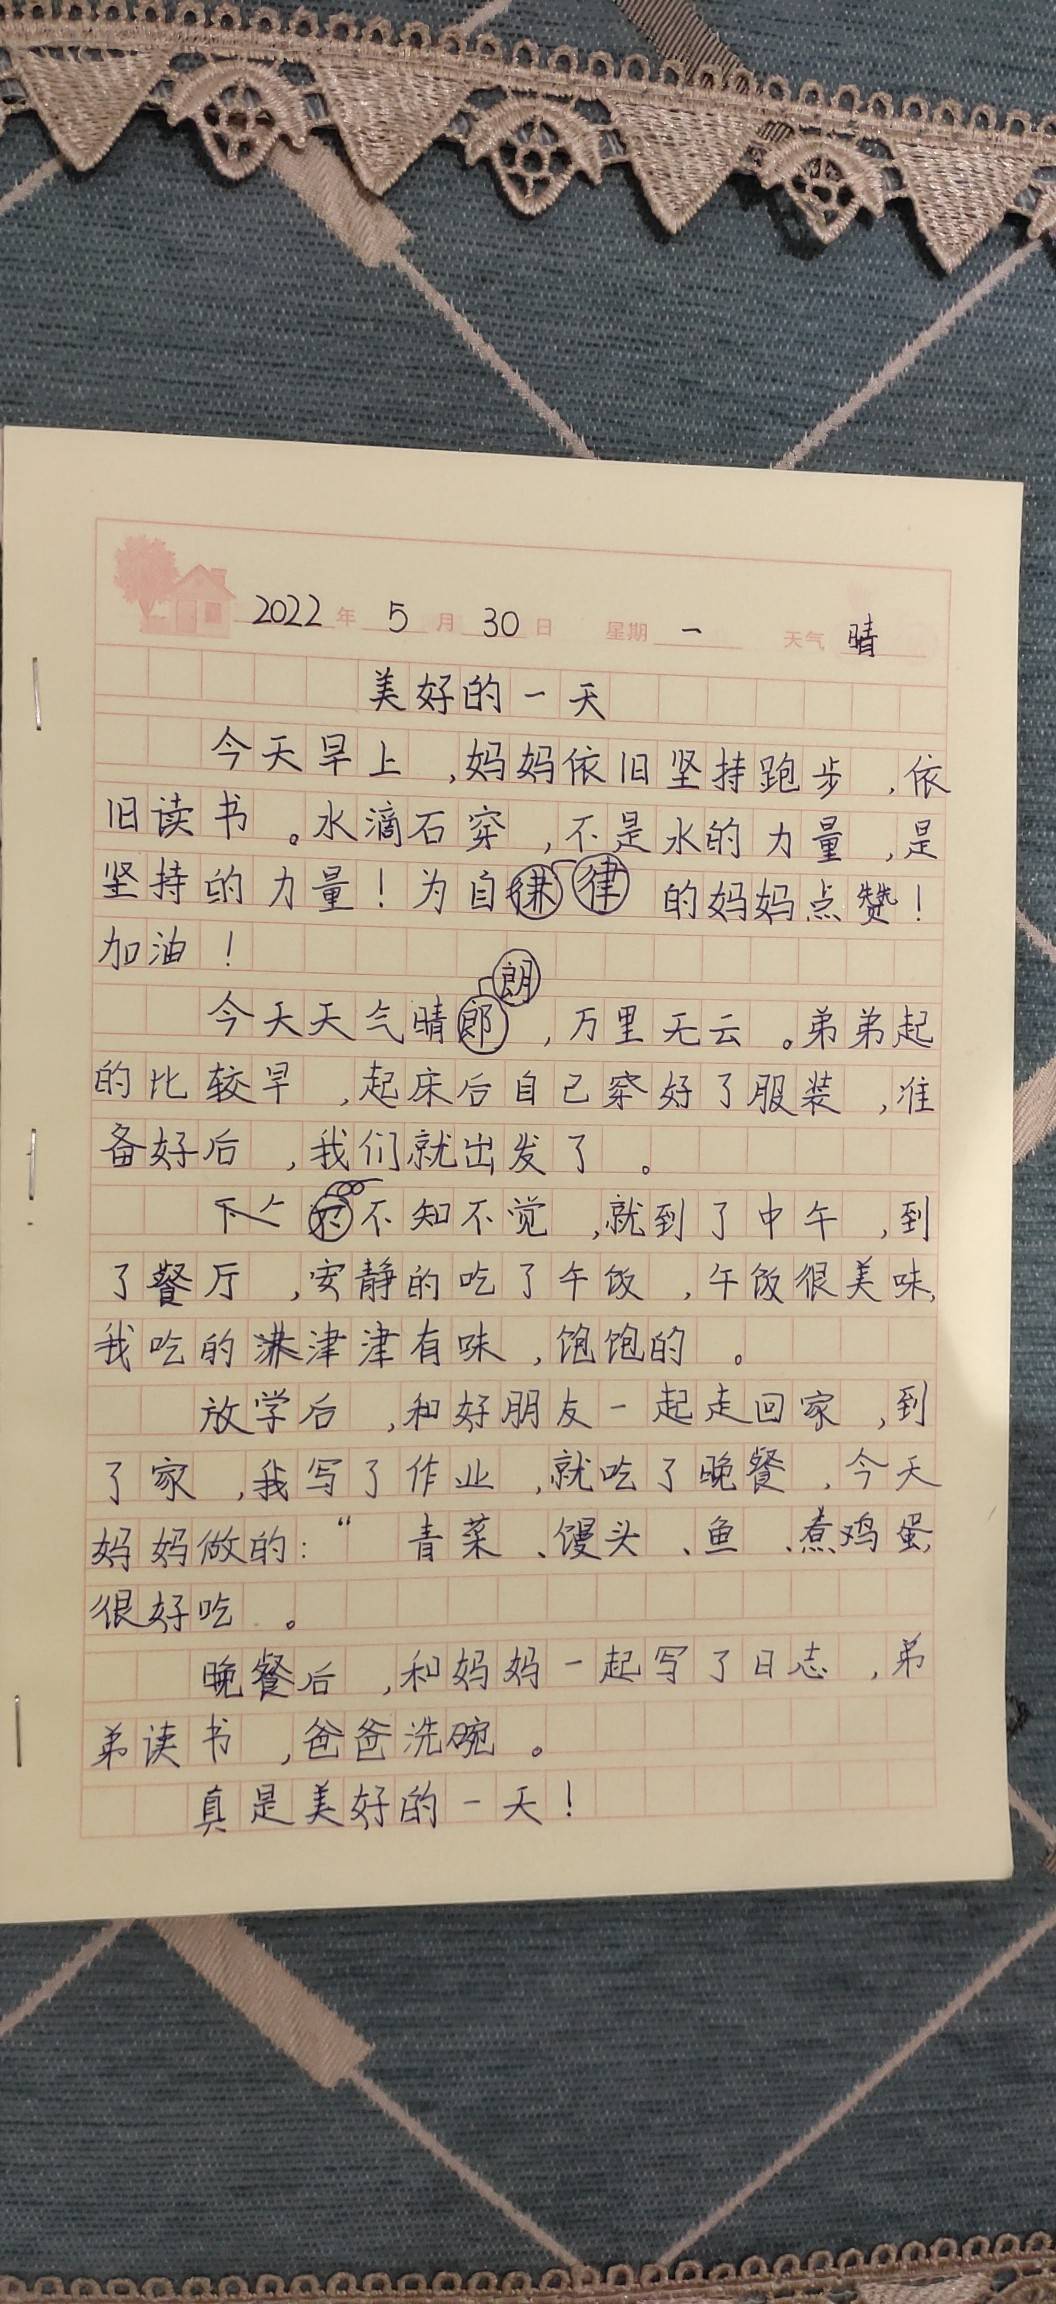 2022年5月30日 星期一 天气晴
美好的一天
今天早上,妈妈依旧坚持跑步,依
旧读书。水滴石穿,不是水的力量,是
坚持的力量!为自律的妈妈点赞!
加油!
今天天气晴朗,万里无云。弟弟起
的比较早,起床后自己穿好了服装,准
备好后,我们就出发了。
不知不觉,就到了中午,到
了餐厅,安静的吃了午饭,午饭很美味,
我吃的津津有味,饱饱的。
放学后,和好朋友一起走回家,到
了家,我写了作业,就吃了晚餐,今天
妈妈做的:“青菜、馒头、鱼、煮鸡蛋,
很好吃。
晚餐后,和妈妈一起写了日志,弟
弟读书,爸爸洗碗。
真是美好的一天!